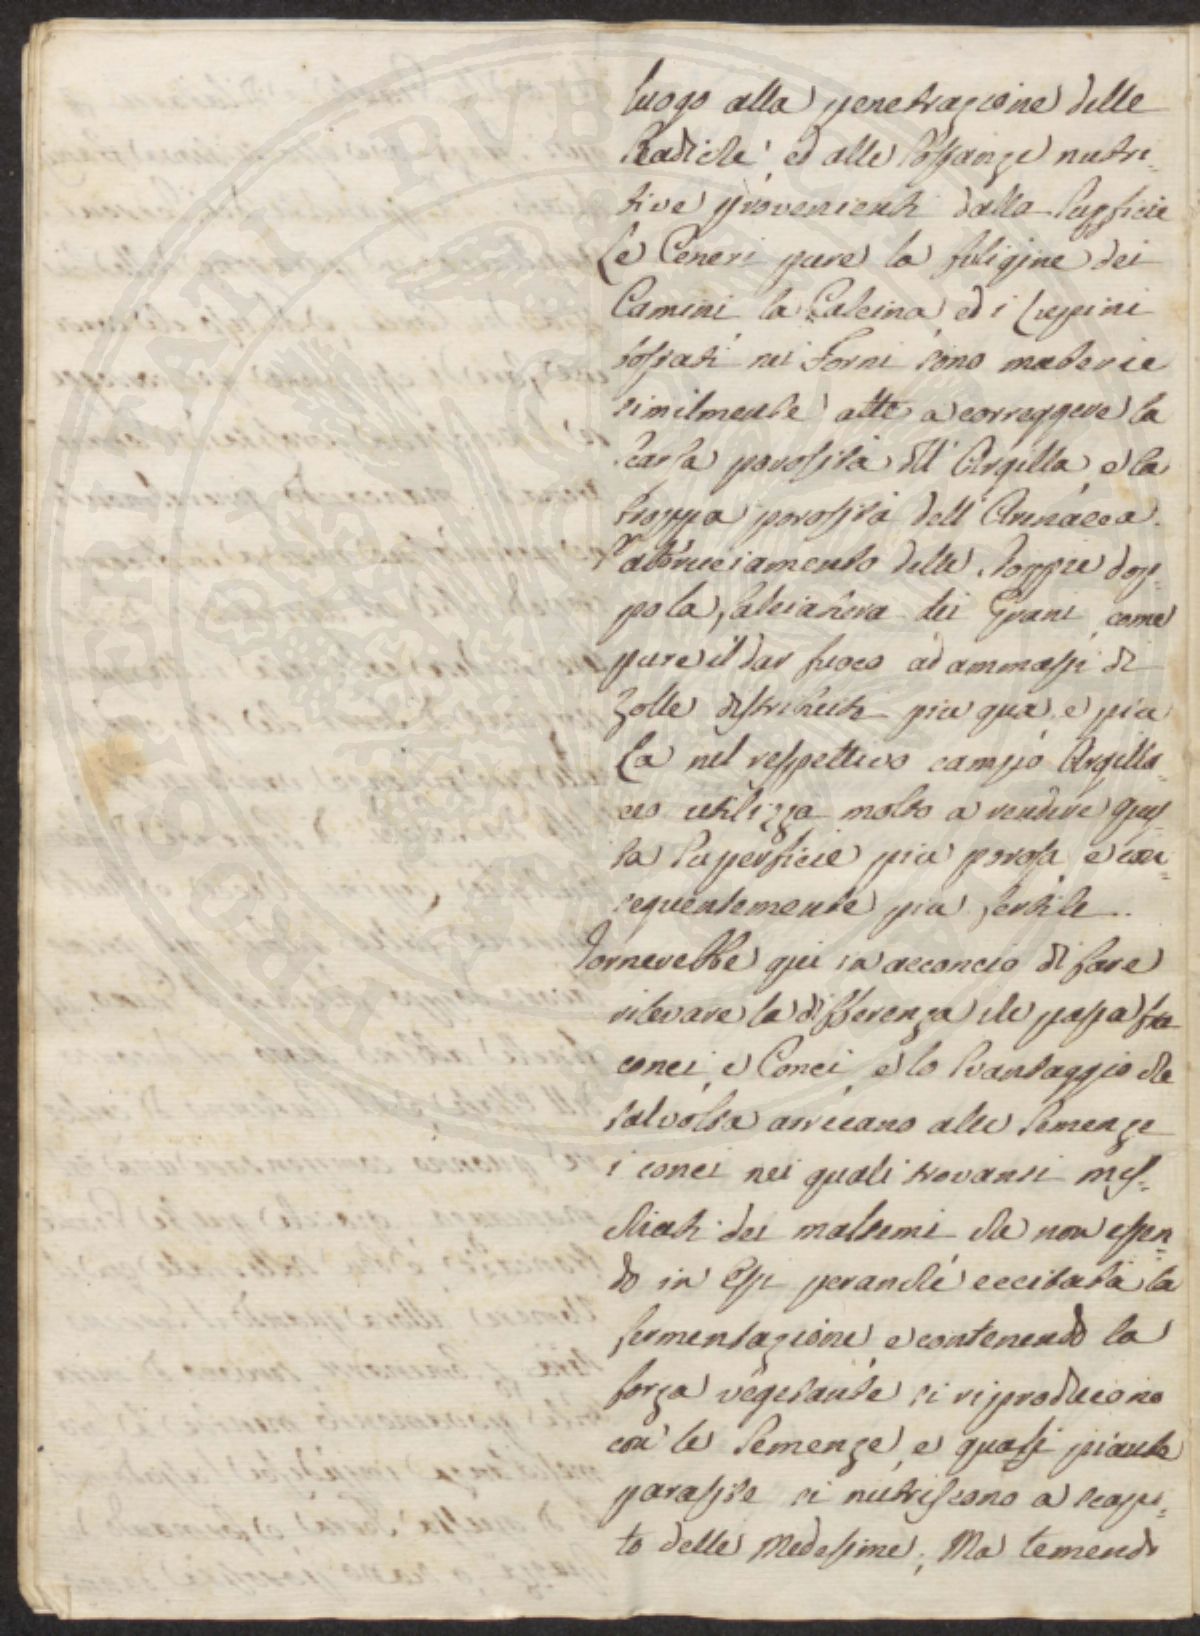 luogo alla penetrazione delle
Radiche, ed alle Sostanze nutri-
tive provenienti dalla Supficie
Le Ceneri pure la filigine dei
Camini la Calcina ed i Luppini
tostati nei Forni sono materie
similmente atte a correggere la
scarsa porosità dell' Argilla, e la
troppa porosità dell' Arenacea.
L'abbruciamento delle Stoppie dop-
po la falciatura dei Grani, come
pure il dar fuoco ad ammassi di
Zolle distribuiti più qua, e più
La nel respettivo campo Argilla-
ceo utilizza molto a rendere ques-
ta superficie più porosa, e con-
seguentemente più fertile.
Tornerebbe qui in acconcio di fare
rilevare la differenza che passa fra
conci, e Conci, e lo Svantaggio che
talvolta arrecano alle Semenze
i conci nei quali trovansi mes-
chiati dei malsemi che non essen-
do in Essi peranche eccitata la
fermentazione, e contenendo la
forza vegetante si riproducono
con le Semenze, e quasi piante
parassite si nutriscono a scapi-
to delle Medesime; Ma temendo